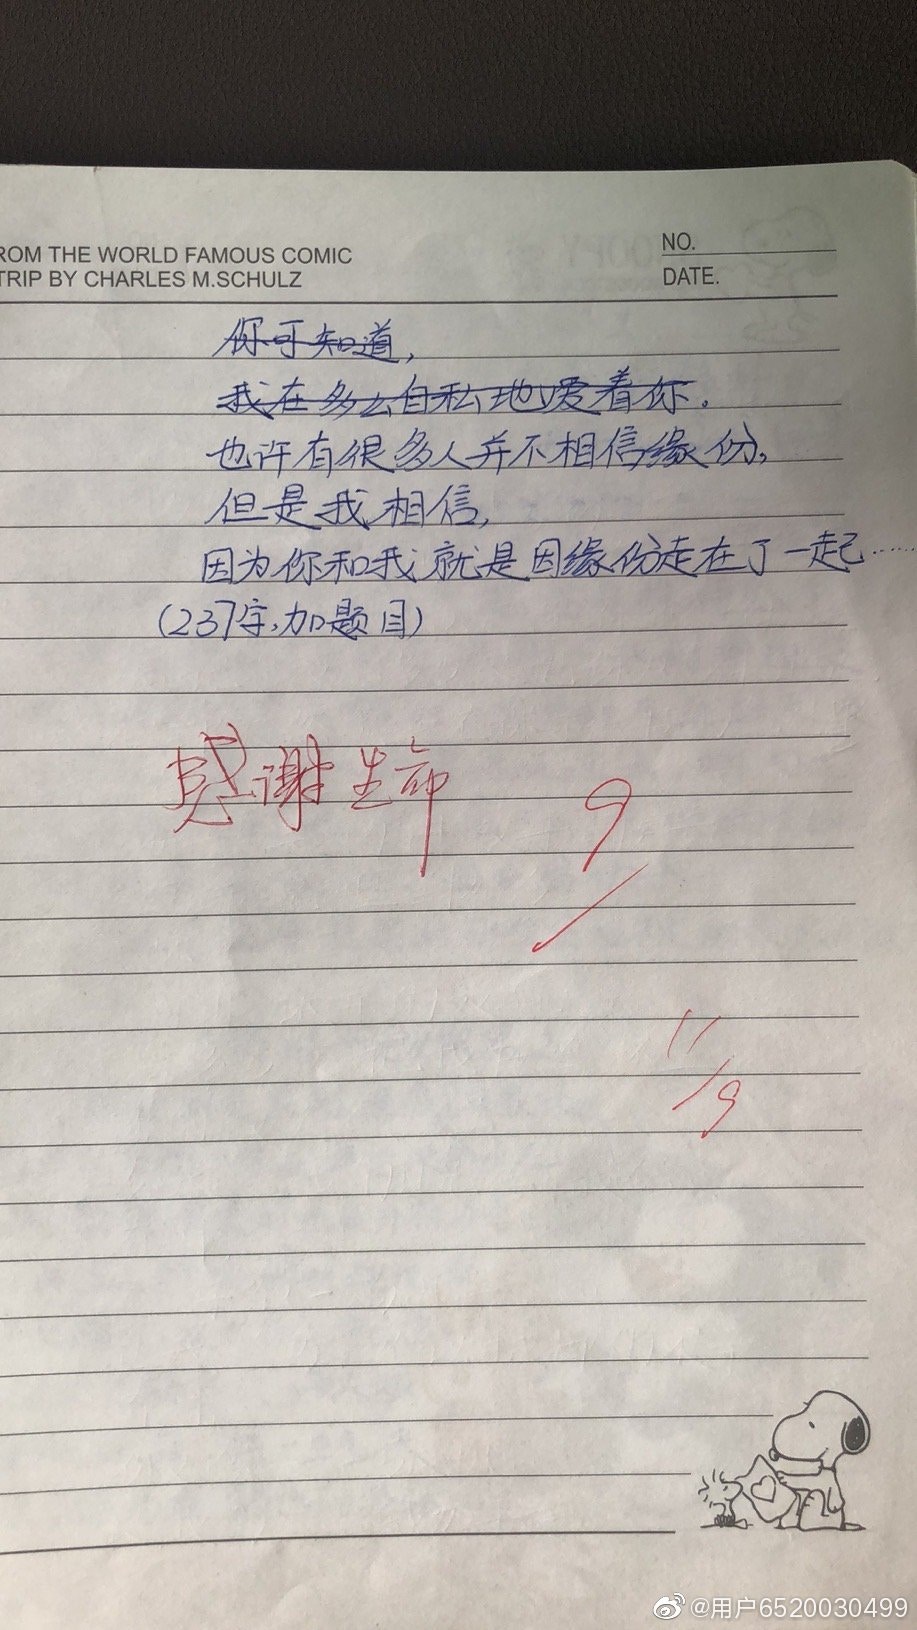 ROM THE WORLD FAMOUS COMIC
TRIP BY CHARLES M.SCHULZ
NO.
DATE.
你可知道,
我在多么自私地爱着你。
也许有很多人并不相信缘份,
但是我相信,
因为你和我就是因缘份走在了一起……
(237字,加题目)
感谢生命
9
11/9
@用户6520030499